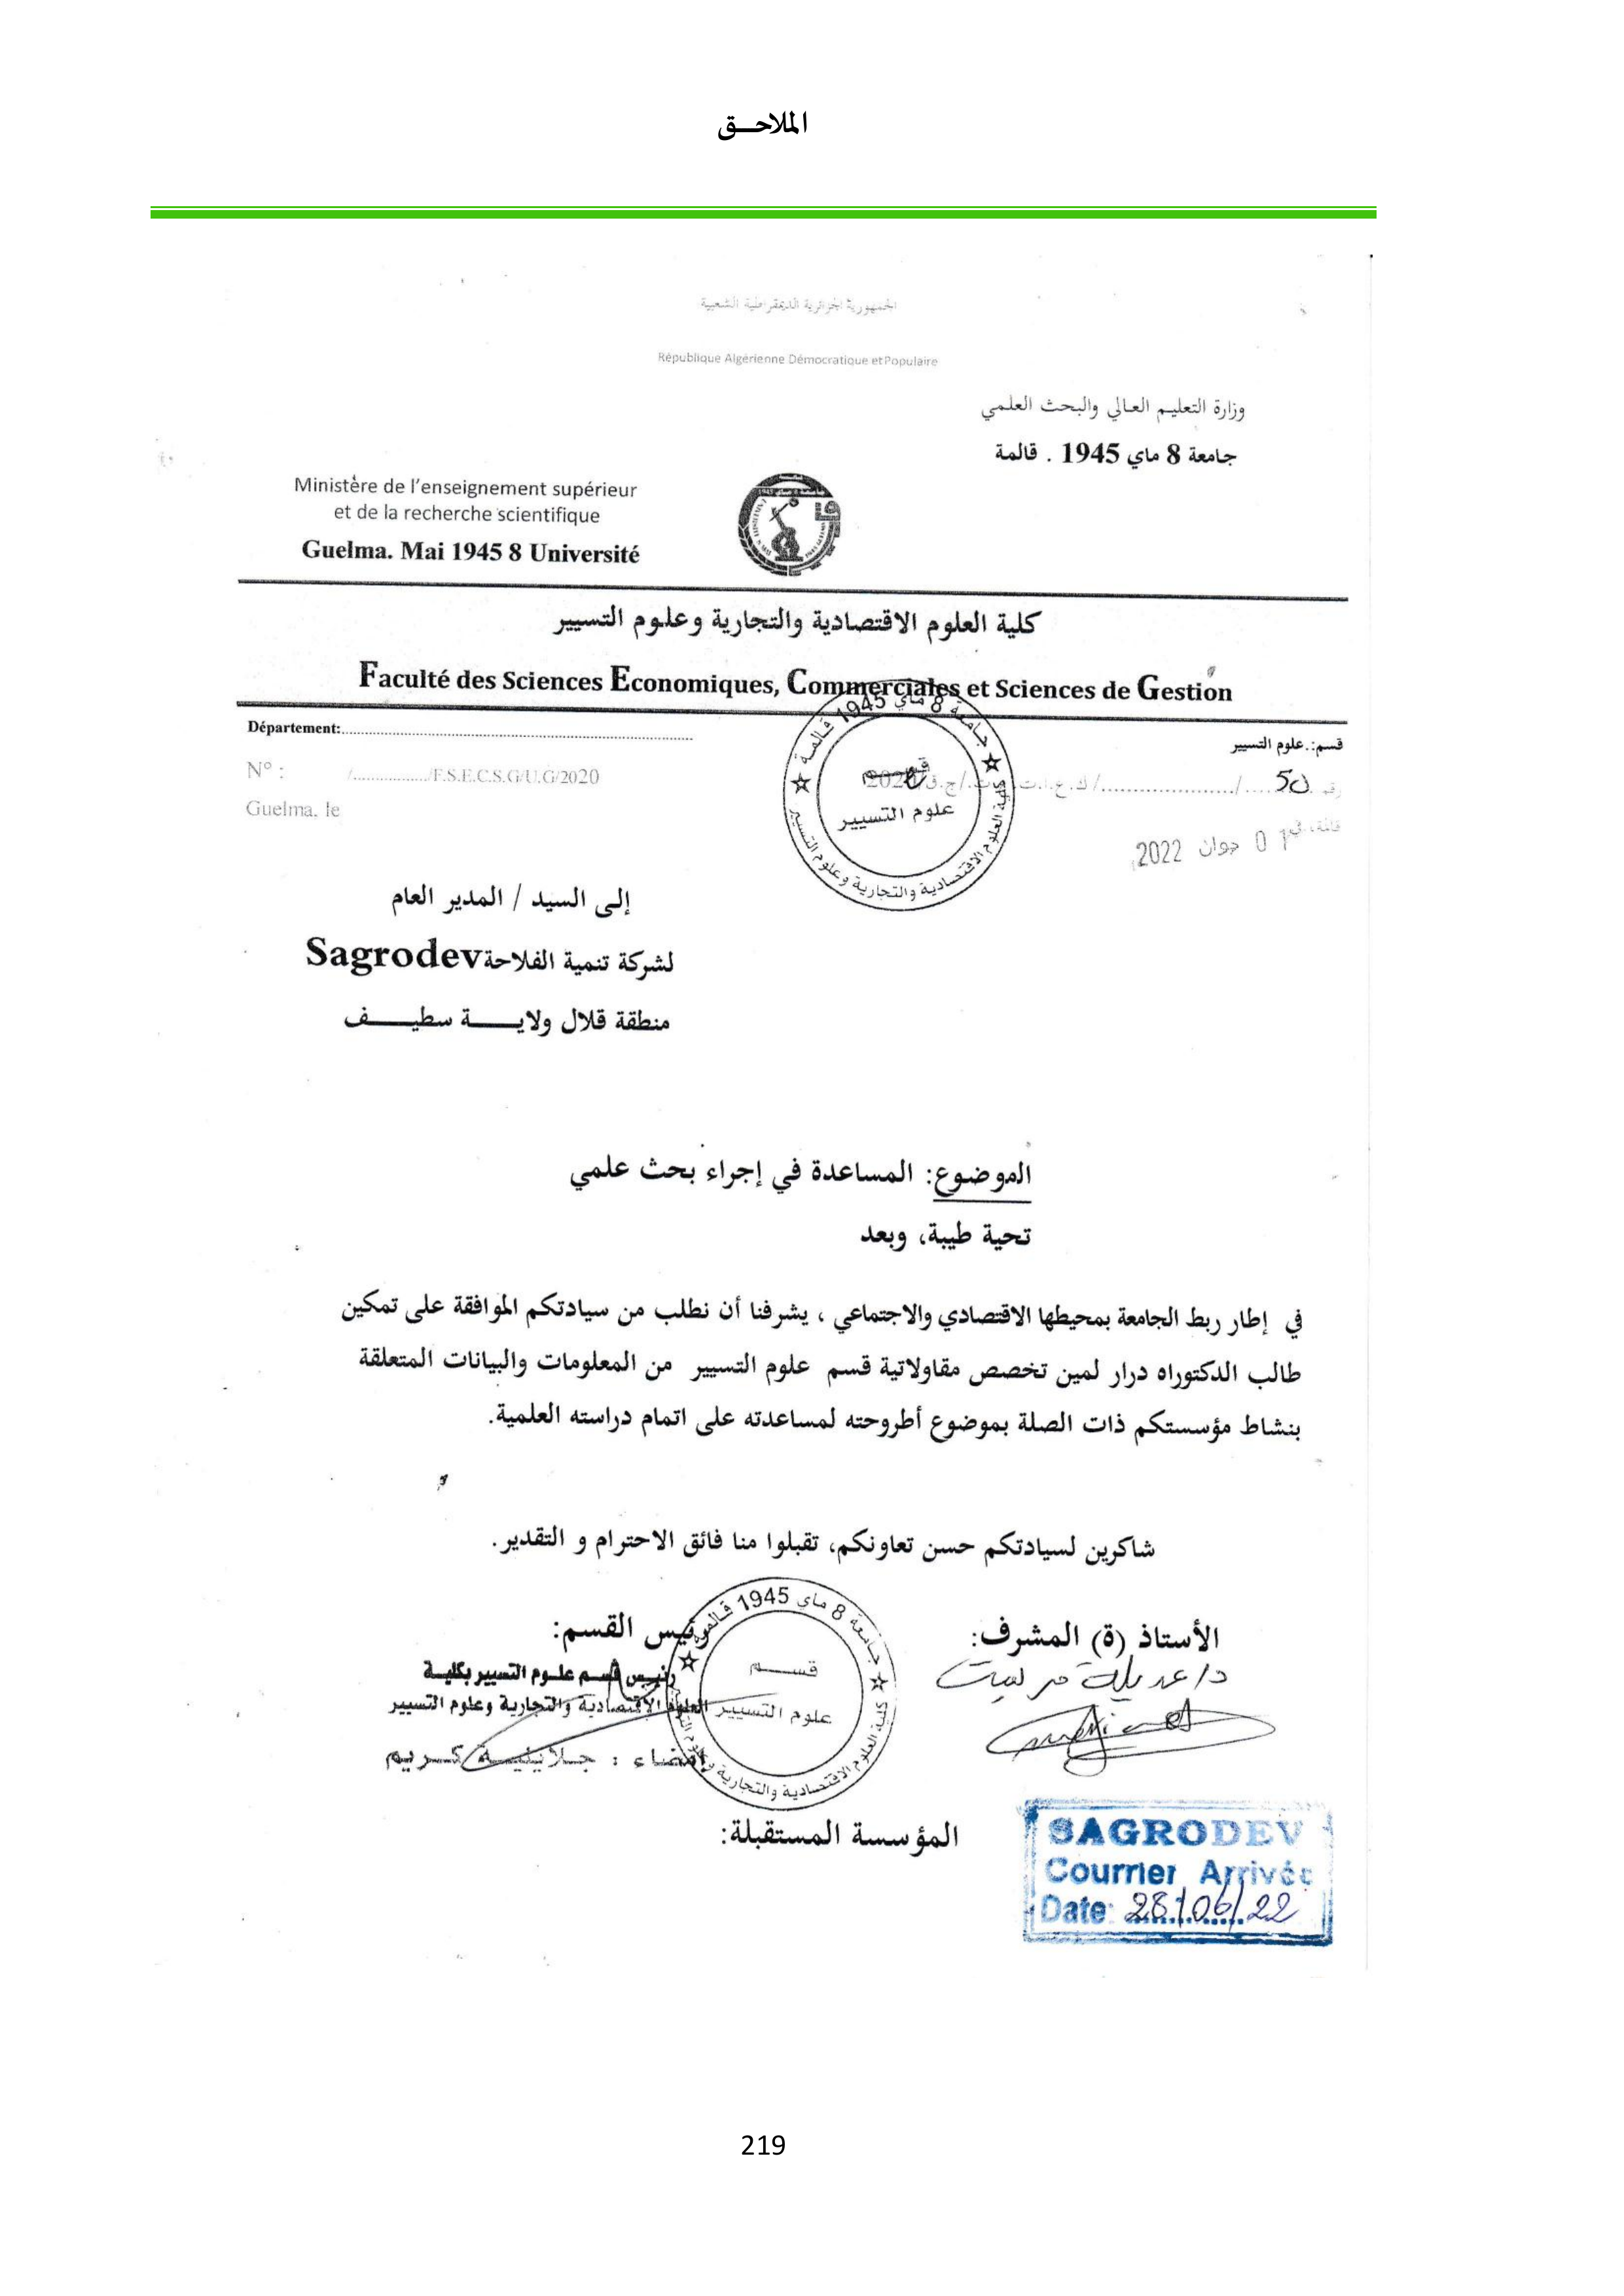 الملاحـــق
الجمهورية الجزائرية الديمقراطية الشعبية
République Algérienne Démocratique et Populaire
وزارة التعليم العالي والبحث العلمي
جامعة 8 ماي 1945 . قالمة
Ministère de l'enseignement supérieur
et de la recherche scientifique
Guelma. Mai 1945 8 Université
كلية العلوم الاقتصادية والتجارية وعلوم التسيير
Faculté des Sciences Economiques, Commerciales et Sciences de Gestion
قسم:.علوم التسيير
Département:
50
N° : /................/F.S.E.C.S.G/U.G/2020
Guelma, le
01 جوان 2022
جامعة 8 ماي 1945 قالمة
كلية العلوم الاقتصادية والتجارية وعلوم التسيير
قسم
علوم التسيير
إلى السيد / المدير العام
لشركة تنمية الفلاحة Sagrodev
منطقة قلال ولايــــة سطيــــف
الموضوع: المساعدة في إجراء بحث علمي
تحية طيبة، وبعد
في إطار ربط الجامعة بمحيطها الاقتصادي والاجتماعي ، يشرفنا أن نطلب من سيادتكم الموافقة على تمكين
طالب الدكتوراه درار لمين تخصص مقاولاتية قسم علوم التسيير من المعلومات والبيانات المتعلقة
بنشاط مؤسستكم ذات الصلة بموضوع أطروحته لمساعدته على اتمام دراسته العلمية.
شاكرين لسيادتكم حسن تعاونكم، تقبلوا منا فائق الاحترام و التقدير.
الأستاذ (ة) المشرف:
رئيس القسم:
رئيس قسم علوم التسيير بكلية
العلوم الاقتصادية والتجارية وعلوم التسيير
إمضاء : جلايلية كريم
جامعة 8 ماي 1945 قالمة
كلية العلوم الاقتصادية والتجارية وعلوم التسيير
قســـم
علوم التسيير
المؤسسة المستقبلة:
SAGRODEV
Courrier Arrivée
Date: 28/06/22
219